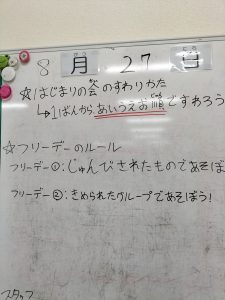 8月27日
☆はじまりの会のすわりかた
↳1ばんから あいうえお順ですわろう
☆フリーデーのルール
フリーデー①:じゅんびされたものであそぼ
フリーデー②:きめられたグループであそぼう!
スタッフ